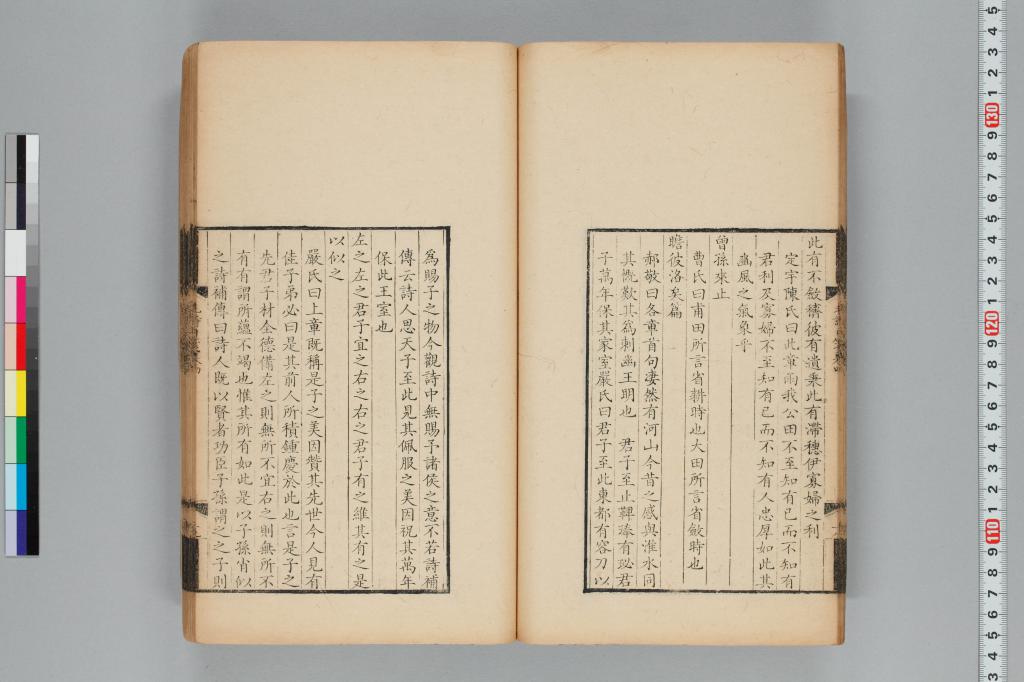 此有不斂穧彼有遺秉此有滯穗伊寡婦之利
定宇陳氏曰此章雨我公田不至知有已而不知有
君利及寡婦不至知有已而不知有人忠厚如此其
豳風之氣象乎
曾孫來止
曹氏曰甫田所言省耕時也大田所言省斂時也
瞻彼洛矣篇
郝敬曰各章首句淒然有河山今昔之感與淮水同
其慨歎其爲刺幽王明也　君子至止鞞琫有珌君
子萬年保其家室嚴氏曰君子至此東都有容刀以
爲賜予之物今觀詩中無賜予諸侯之意不若詩補
傳云詩人思天子至此見其佩服之美因祝其萬年
保此王室也
左之左之君子宜之右之右之君子有之維其有之是
以似之
嚴氏曰上章既稱是子之美因贊其先世今人見有
佳子弟必曰是其前人所積鍾慶於此也言是子之
先君子材全德備左之則無所不宜右之則無所不
有有謂所蘊不竭也惟其所有如此是以子孫肖似
之詩補傳曰詩人既以賢者功臣子孫謂之之子則
130
120
110